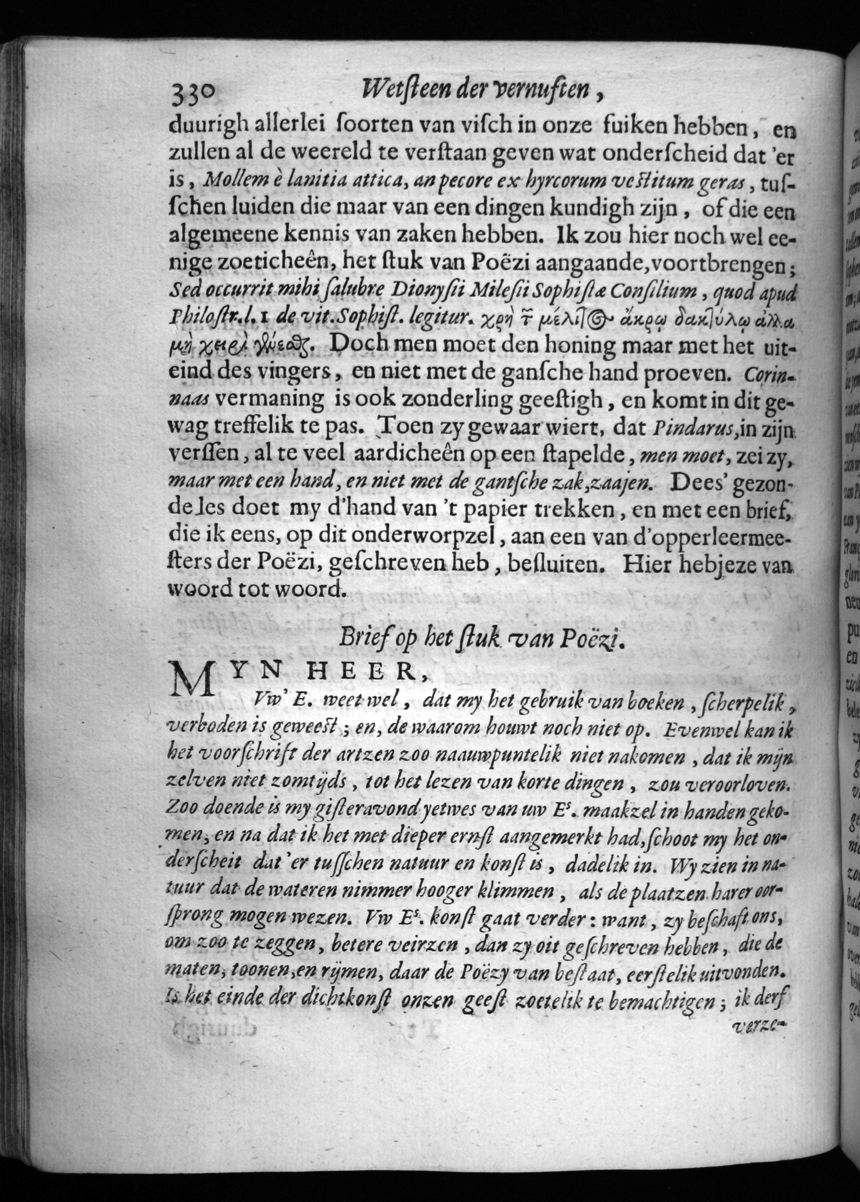 330 Wetſteen der vernuften,
duurigh allerlei ſoorten van viſch in onze fuiken hebben, en
zullen al de weereld te verſtaan geven wat onderſcheid dat 'er
is, Mollem è lanitia attica, an pecore ex hyrcorum veſtitum geras, tuſ-
ſchen luiden die maar van een dingen kundigh zijn, of die een
algemeene kennis van zaken hebben. Ik zou hier noch wel ee-
nige zoeticheên, het ſtuk van Poëzi aangaande, voortbrengen;
Sed occurrit mihi ſalubre Dionyſii Mileſii Sophiſtæ Conſilium, quod apud
Philoſtr. l. 1 de vit. Sophiſt. legitur. χρὴ τ̃ μέλιτος ἄκρῳ δακτύλῳ ἀλλα
μὴ χειρὶ γεύεσθς. Doch men moet den honing maar met het uit-
eind des vingers, en niet met de ganſche hand proeven. Corin-
naas vermaning is ook zonderling geeſtigh, en komt in dit ge-
wag treffelik te pas. Toen zy gewaar wiert, dat Pindarus, in zijn
verſſen, al te veel aardicheên op een ſtapelde, men moet, zei zy,
maar met een hand, en niet met de gantſche zak, zaajen. Dees' gezon-
de les doet my d'hand van 't papier trekken, en met een brief,
die ik eens, op dit onderworpzel, aan een van d'opperleermee-
ſters der Poëzi, geſchreven heb, beſluiten. Hier hebjeze van
woord tot woord.
Brief op het ſtuk van Poëzi.
MYN HEER,
Vw' E. weet wel, dat my het gebruik van boeken, ſcherpelik,
verboden is geweeſt; en, de waarom houwt noch niet op. Evenwel kan ik
het voorſchrift der artzen zoo naauwpuntelik niet nakomen, dat ik mijn
zelven niet zomtijds, tot het lezen van korte dingen, zou veroorloven.
Zoo doende is my giſteravond yetwes van uw Eˢ. maakzel in handen geko-
men, en na dat ik het met dieper ernſt aangemerkt had, ſchoot my het on-
derſcheit dat'er tuſſchen natuur en konſt is, dadelik in. Wy zien in na-
tuur dat de wateren nimmer hooger klimmen, als de plaatzen harer oor-
ſprong mogen wezen. Vw Eˢ. konſt gaat verder: want, zy beſchaft ons,
om zoo te zeggen, betere veirzen, dan zy oit geſchreven hebben, die de
maten, toonen, en rijmen, daar de Poëzy van beſtaat, eerſtelik uitvonden.
Is het einde der dichtkonſt onzen geeſt zoetelik te bemachtigen; ik derf
verze-